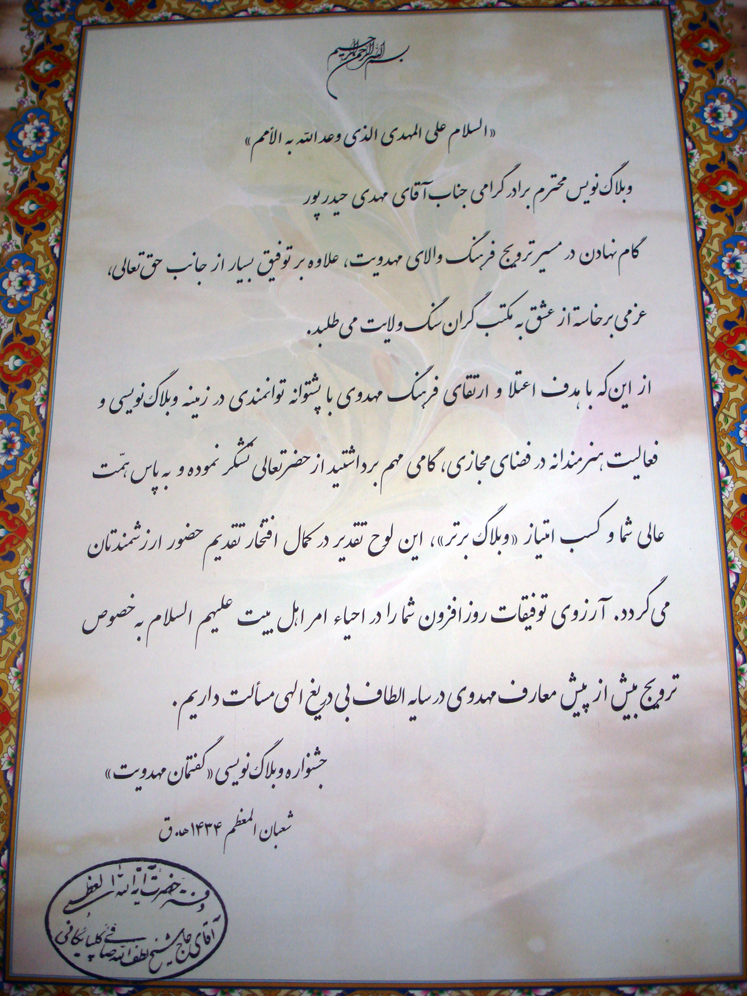 بسم الله الرحمن الرحیم
«السلام علی المهدی الذی وعد الله به الأمم»
وبلاگ‌نویس محترم برادر گرامی جناب آقای مهدی حیدرپور
گام نهادن در مسیر ترویج فرهنگ والای مهدویت، علاوه بر توفیق بسیار از جانب حق‌تعالی،
عزمی برخاسته از عشق به مکتب گران‌سنگ ولایت می‌طلبد.
از این‌که با هدف اعتلا و ارتقای فرهنگ مهدوی با پشتوانه توانمندی در زمینه وبلاگ‌نویسی و
فعالیت هنرمندانه در فضای مجازی، گامی مهم برداشتید از حضرتعالی تشکر نموده و به پاس همّت
عالی شما و کسب امتیاز «وبلاگ برتر»، این لوح تقدیر در کمال افتخار تقدیم حضور ارزشمندتان
می‌گردد. آرزوی توفیقات روزافزون شما را در احیاء امر اهل بیت علیهم السلام به خصوص
ترویج بیش از پیش معارف مهدوی در سایه الطاف بی دریغ الهی مسألت داریم.
جشنواره وبلاگ‌نویسی «گفتمان مهدویت»
شعبان المعظم ۱۴۳۴ ه‍.ق
دفتر حضرت آیة الله العظمی
آقای حاج شیخ لطف الله صافی گلپایگانی